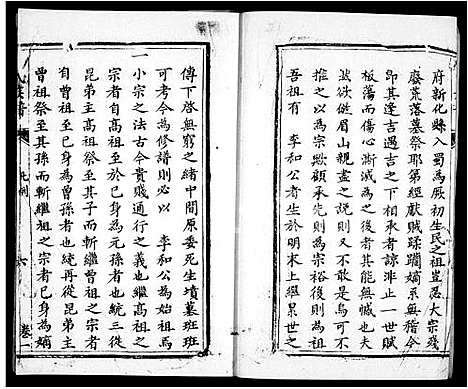 府新化縣入蜀為厥初生民之祖豈忍大宗殘
廢荒落墓祭耶第經獻賊蹂躪嫡系無稽今
卽其逢吉遇吉之下相承者諒非止一世賊
板蕩而傷心澌滅為之後者其能無動念乎
茲欲继眉山親盡之説則又不敢是烏可不
推之以為宗歟顧承祧為宗宗裕後則為祖
吾祖有 李和公者生於明末上繼累世之
傳下啓無窮之緒中間原委死生墳墓班班
可考今為修譜則必以 李和公為始祖焉
一
小宗之法古今貴賤通行之義也繼高祖之
宗者自高祖至於已身為元孫者也統三從
昆弟主高祖祭至其子而斬繼曾祖之宗者
自曾祖至已身為曾孫者也統再從昆弟主
曾祖祭至其孫而斬繼祖之宗者已身為嫡
凡例
六
卷一